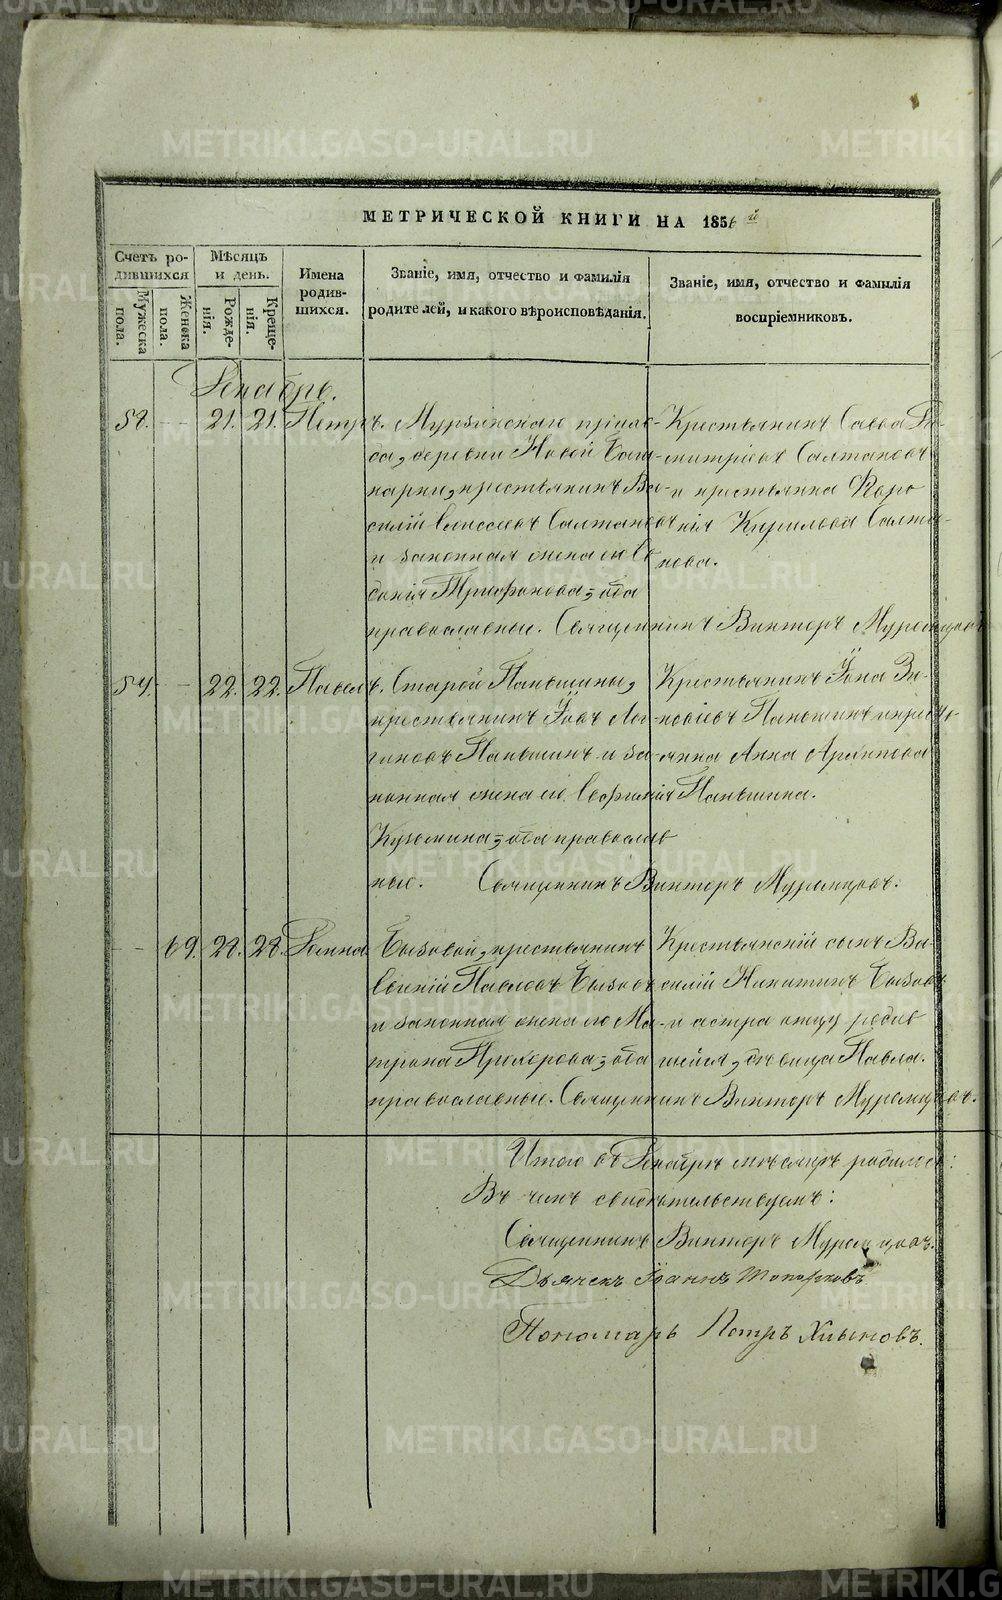 МЕТРИЧЕСКОЙ КНИГИ НА 1856й
Счетъ ро-
дившихся
Мужеска пола.
Женска пола.
Мѣсяцъ
и день.
Рожде-
нія.
Креще-
нія.
Имена
родив-
шихся.
Званіе, имя, отчество и фамилія
родителей, и какого вѣроисповѣданія.
Званіе, имя, отчество и фамилія
воспріемниковъ.
Декабрь.
21. 21. Петръ.
Мурзинскаго
деревни Новой
крестьянинъ Ва-
силій Салтановъ
и законная жена его Ев
докія Трифонова, оба
православные. Священникъ Викторъ
Крестьянинъ Савва Ди-
митріевъ Салтановъ
и крестьянка
Кирилова Салта-
нова.
22. 22. Павелъ.
Старой Паньшины,
крестьянинъ Іовъ Ло-
гиновъ Паньшинъ и за-
конная жена его
Кузьмина, оба православ
ные. Священникъ Викторъ
Крестьянинъ Зи-
новіевъ Паньшинъ и кресть-
янка Анна
Паньшина.
69. 28. 28.
Бызовой, крестьянинъ
Евгеній Павловъ Бызовъ
и законная жена его Ма-
трона оба
православные. Священникъ Викторъ
Крестьянскій сынъ Ва-
силій Никитинъ Бызовъ
и сестра отцу родив
шейся, дѣвица Павла.
Итого въ Декабрѣ мѣсяцѣ родилось:
Въ чемъ свидѣтельствуемъ:
Священникъ Викторъ
Дьячекъ Іоаннъ Топорковъ
Пономарь Петръ Хлыновъ.
METRIKI.GASO-URAL.RU